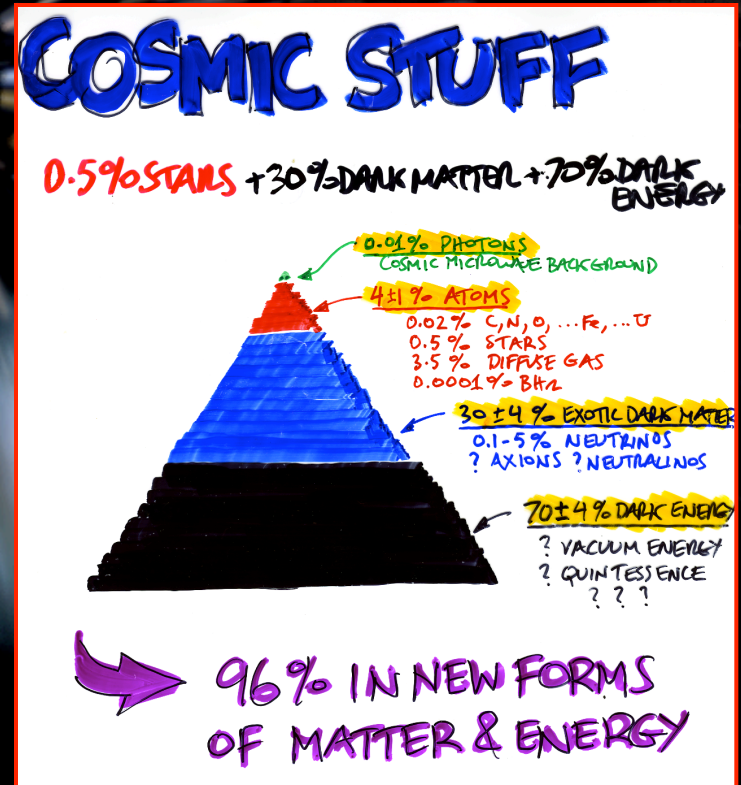 COSMIC STUFF
0.5% STARS + 30% DARK MATTER + 70% DARK
ENERGY
0.01% PHOTONS
COSMIC MICROWAVE BACKGROUND
4±1% ATOMS
0.02% C, N, O, ... Fe, ... U
0.5% STARS
3.5% DIFFUSE GAS
0.0001% BHs
30±4% EXOTIC DARK MATTER
0.1-5% NEUTRINOS
? AXIONS ? NEUTRALINOS
70±4% DARK ENERGY
? VACUUM ENERGY
? QUINTESSENCE
? ? ?
96% IN NEW FORMS
OF MATTER & ENERGY